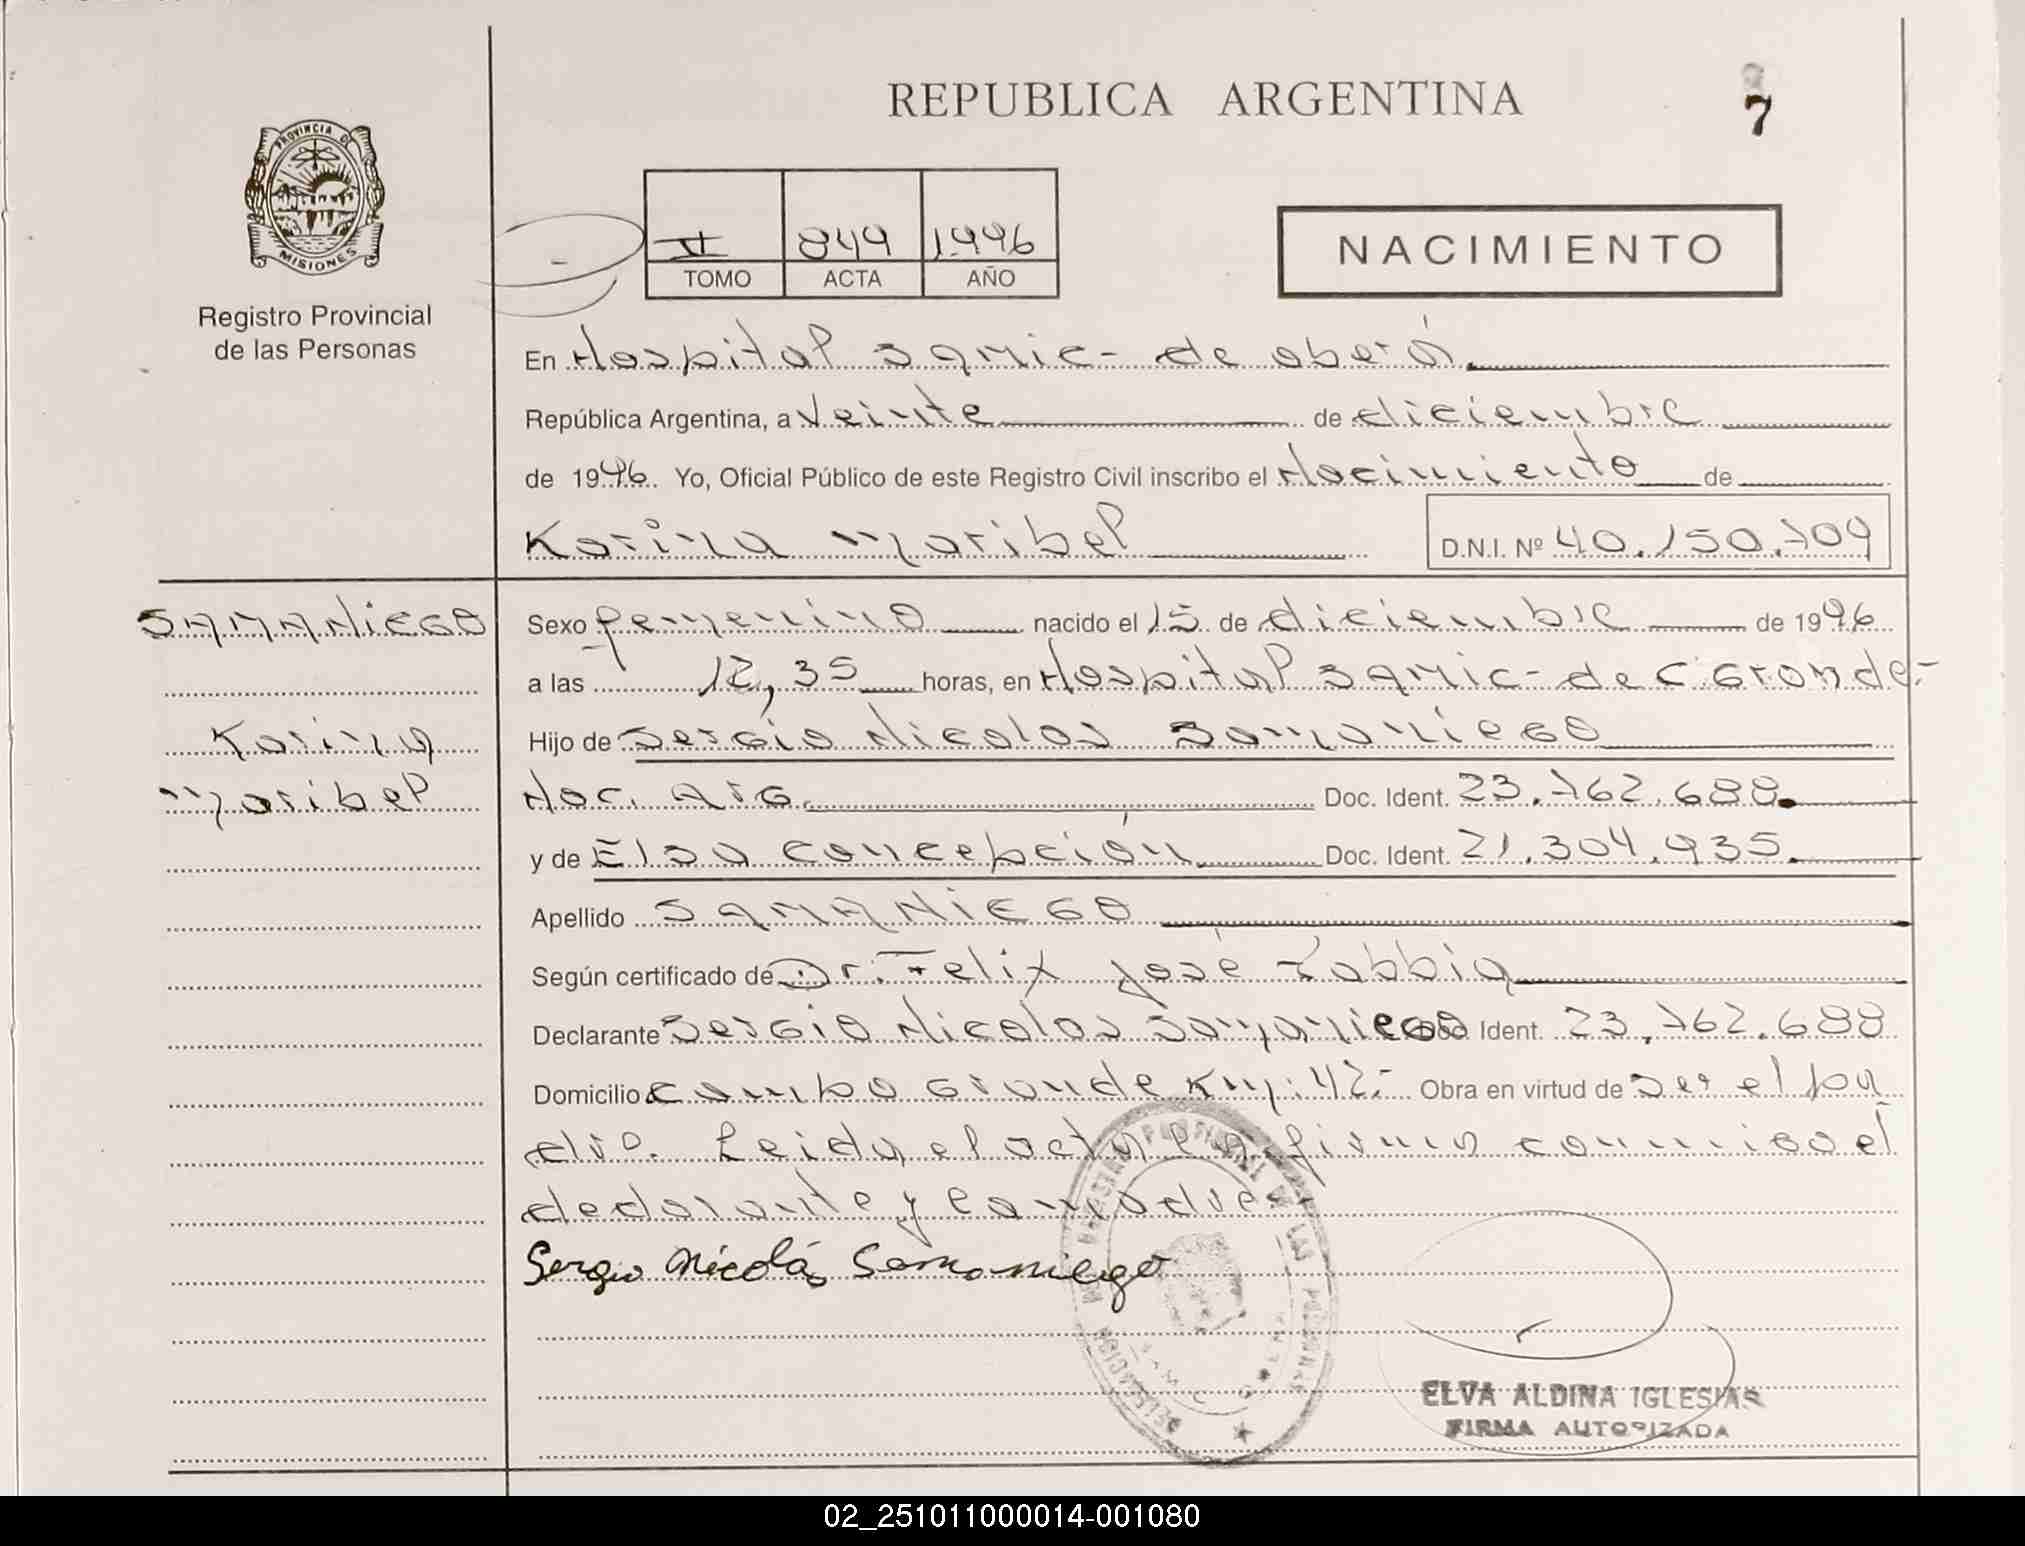 REPUBLICA ARGENTINA
7
PROVINCIA DE
MISIONES
Registro Provincial
de las Personas
II 849 1996
TOMO ACTA AÑO
NACIMIENTO
En Hospital SAMIC- de oberá
República Argentina, a Veinte de diciembre
de 1996. Yo, Oficial Público de este Registro Civil inscribo el Nacimiento de
Karina Maribel D.N.I. Nº 40.150.709
SAMANIEGO Sexo femenino nacido el 15 de diciembre de 1996
a las 12,35 horas, en Hospital SAMIC- de C. Grande.-
Karina Hijo de Sergio Nicolas Samaniego
Maribel Nac. Arg. Doc. Ident. 23.762.688.
y de Elsa Concepción Doc. Ident. 21.304.935.
Apellido SAMANIEGO
Según certificado de Dr. Felix José
Declarante Sergio Nicolas Samaniego Ident. 23.762.688
Domicilio Campo Grande Km: 42.- Obra en virtud de ser el pa
dre. Leida el acta la firma conmigo el
declarante y la madre.
Sergio Nicolás Samaniego
REGISTRO PROVINCIAL DE LAS PERSONAS
DELEGACION
ELVA ALDINA IGLESIAS
FIRMA AUTORIZADA
02_251011000014-001080